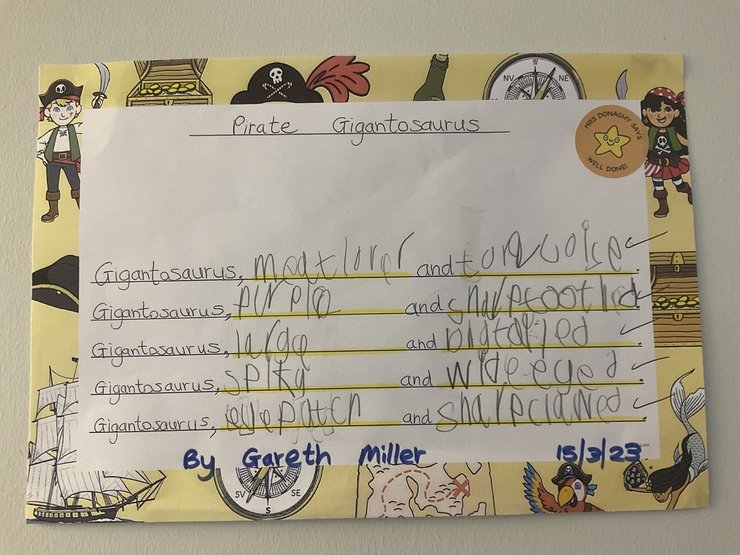 NV N NE
Pirate Gigantosaurus
MRS DONAGHY SAYS
WELL DONE!
Gigantosaurus, meatlover and
Gigantosaurus, and
Gigantosaurus, large and
Gigantosaurus, spiky and wide eyed.
Gigantosaurus, eyepatch and sharpclawed.
By Gareth Miller 15/3/23
SV S SE